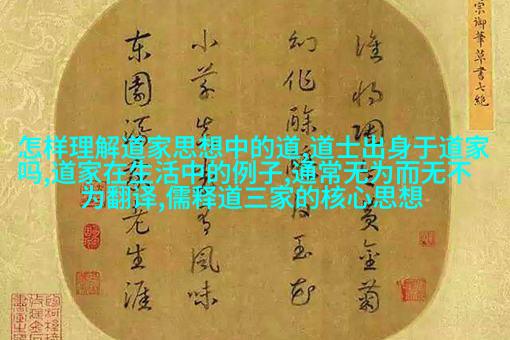 宗御筆草書七絕
怎样理解道家思想中的道,道士出身于道家
吗,道家在生活中的例子,通常无为而无不
为翻译,儒释道三家的核心思想
誰將陶黃金菊
幻作酴玉花
小草有風味
東園老生涯